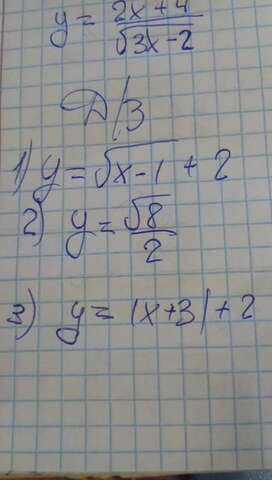 y = (2x + 4)/√(3x - 2)
Д/З
1) y = √(x - 1) + 2
2) y = √8/2
3) y = |x + 3| + 2